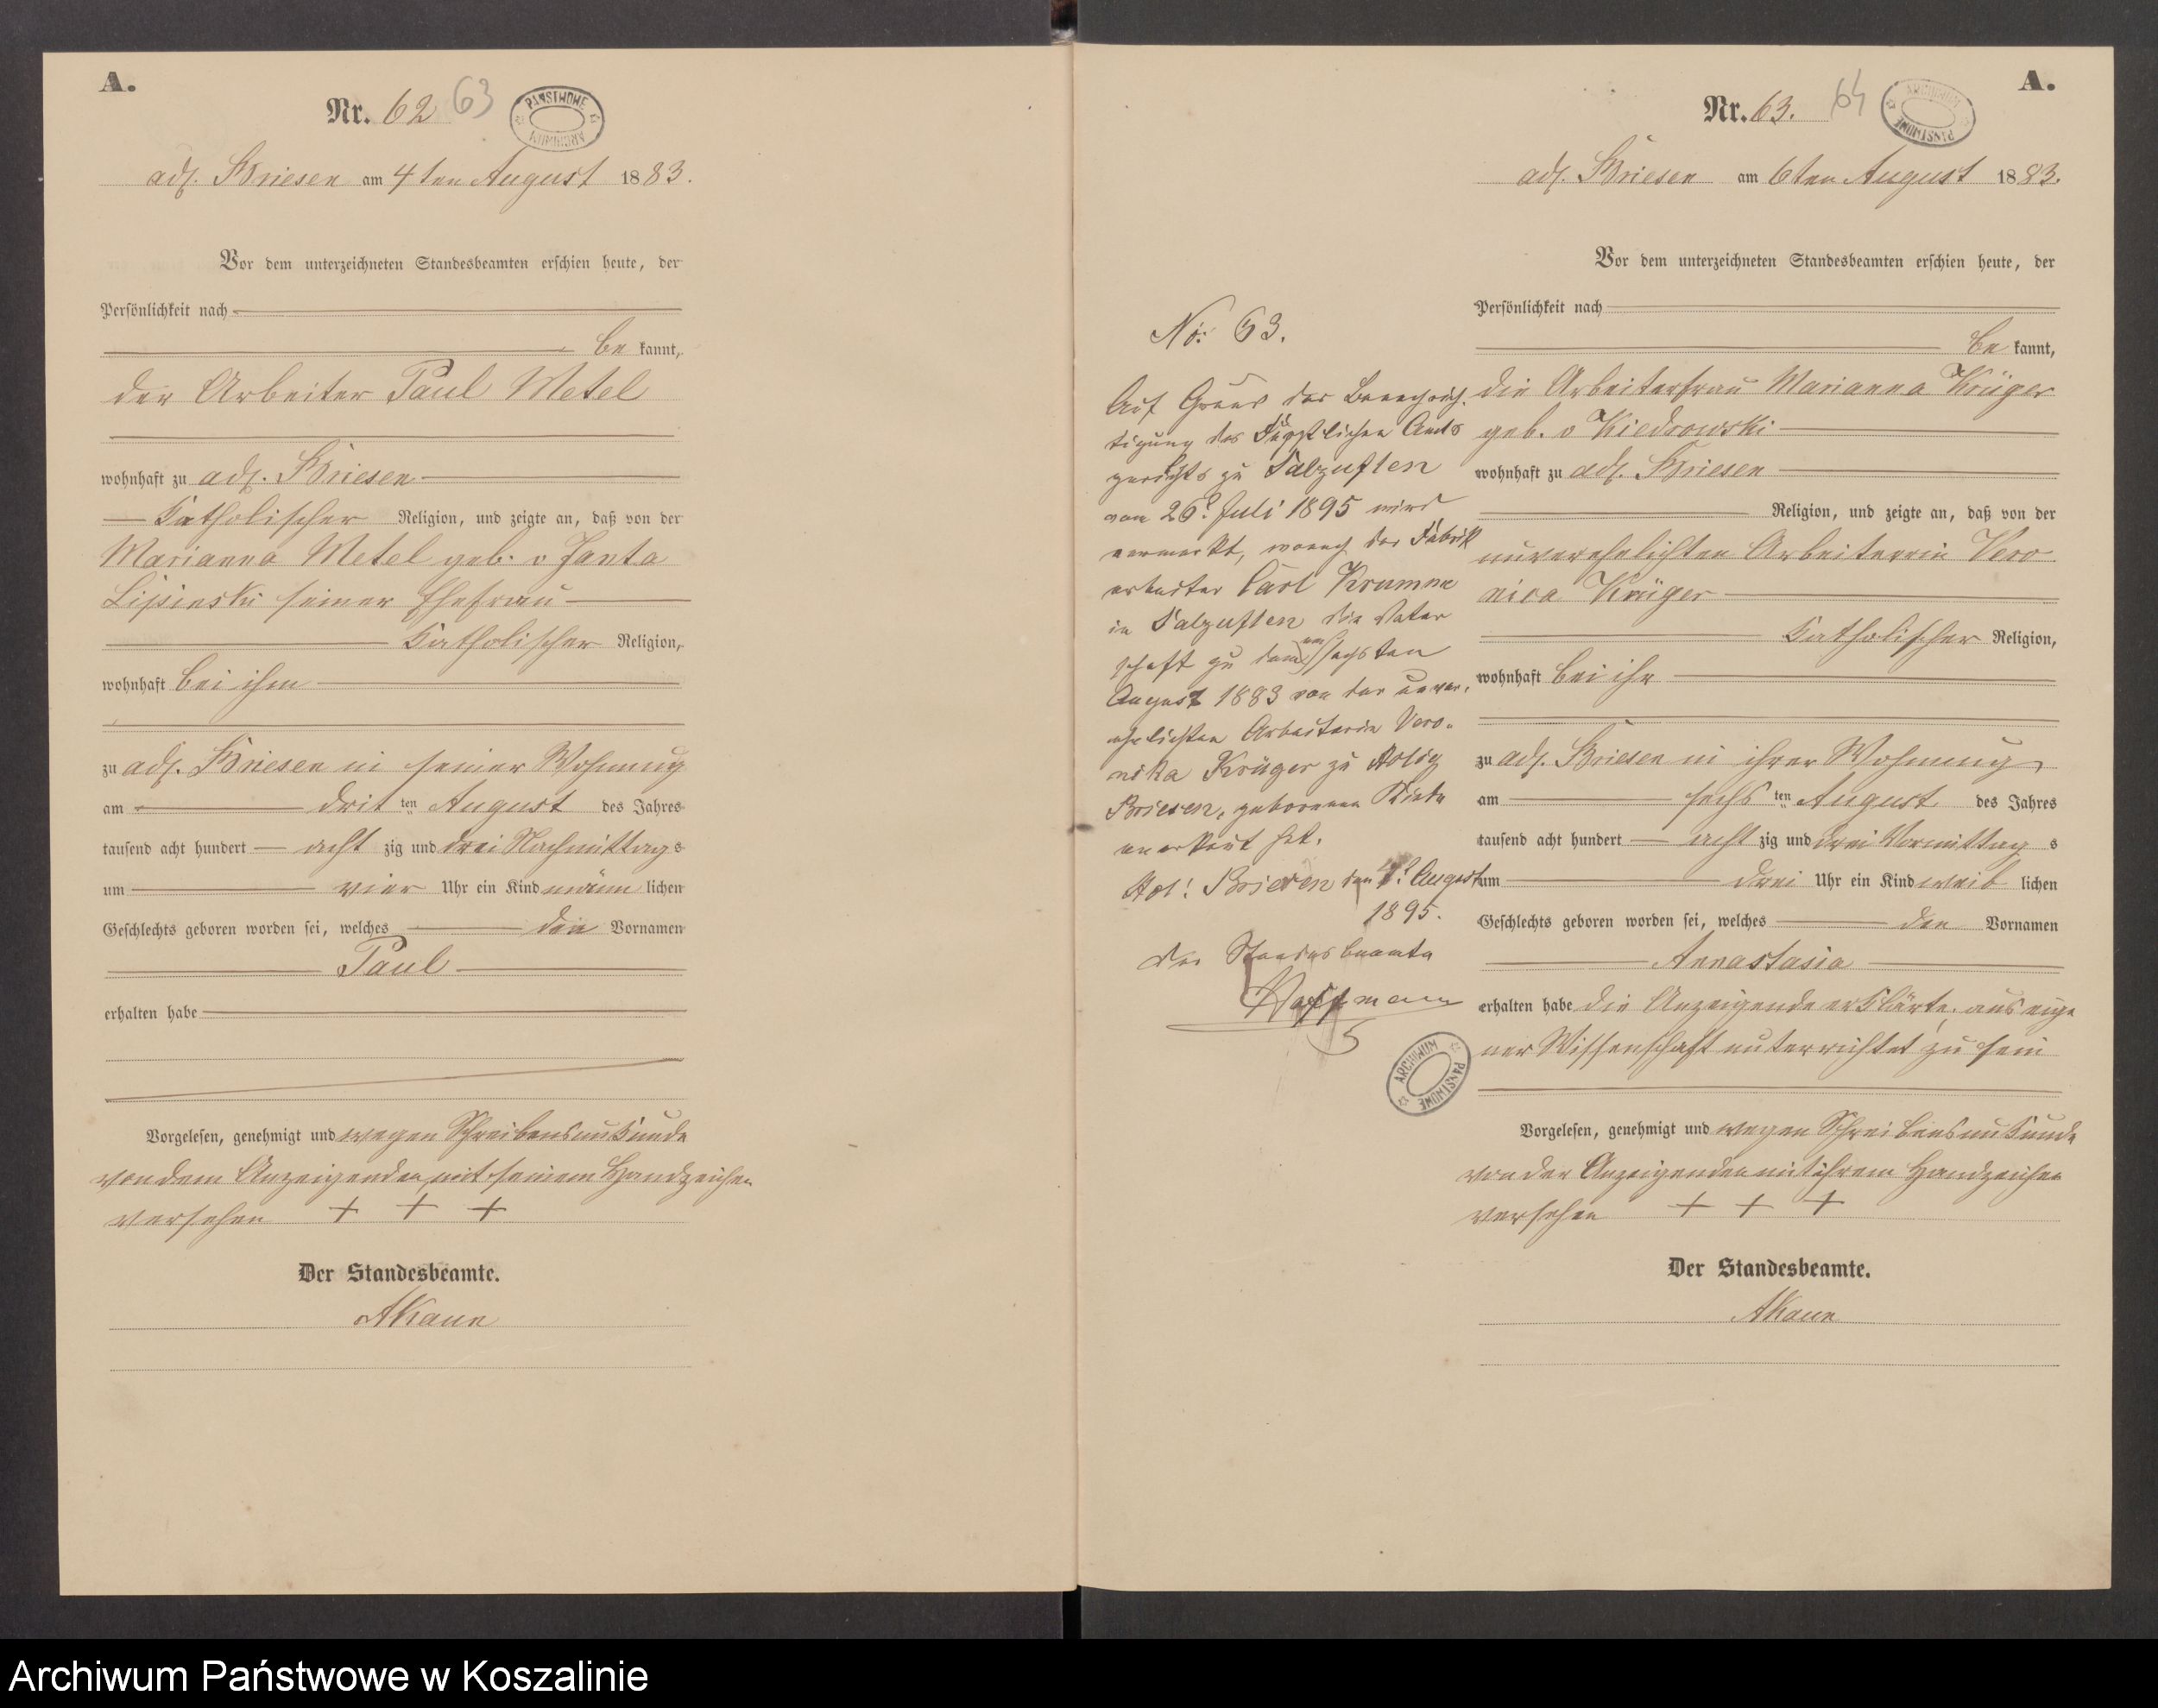 A.
Nr. 62 63
PAŃSTWOWE ARCHIWUM
adl. Briesen am 4ten August 1883.
Vor dem unterzeichneten Standesbeamten erschien heute, der
Persönlichkeit nach
be kannt,
der Arbeiter Paul Metel
wohnhaft zu adl. Briesen
Katholischer Religion, und zeigte an, daß von der
Marianna Metel geb. v Janta
Lipinski seiner Ehefrau
Katholischer Religion,
wohnhaft bei ihm
zu adl. Briesen in seiner Wohnung
am drit ten August des Jahres
tausend acht hundert acht zig und drei Nachmittags
um vier Uhr ein Kind männ lichen
Geschlechts geboren worden sei, welches den Vornamen
Paul
erhalten habe
Vorgelesen, genehmigt und wegen Schreibensunkunde
von dem Anzeigenden mit seinem Handzeichen
versehen + + +
Der Standesbeamte.
AKaun
No: 63.
Auf Grund der Benachrich-
tigung des Fürstlichen Amts
gerichts zu Salzuflen
vom 26ᵗ Juli 1895 wird
vermerkt, wonach der Fabrik
arbeiter Carl Krumme
in Salzuflen die Vater
schaft zu dem am sechsten
August 1883 von der unver-
ehelichten Arbeiterin Vero-
nika Krüger zu Adlig
Briesen, geborenen Kinde
anerkant hat.
Adl: Briesen den August
1895.
Der Standesbeamte
ARCHIWUM PAŃSTWOWE
A.
Nr. 63. 64
ARCHIWUM PAŃSTWOWE
adl. Briesen am 6ten August 1883.
Vor dem unterzeichneten Standesbeamten erschien heute, der
Persönlichkeit nach
be kannt,
die Arbeiterfrau Marianna Krüger
geb. v Kiedrowski
wohnhaft zu adl. Briesen
Religion, und zeigte an, daß von der
unverehelichten Arbeiterrin Vero
nica Krüger
Katholischer Religion,
wohnhaft bei ihr
zu adl. Briesen in ihrer Wohnung
am sechs ten August des Jahres
tausend acht hundert acht zig und drei Vormittag s
um drei Uhr ein Kind weib lichen
Geschlechts geboren worden sei, welches den Vornamen
Annastasia
erhalten habe die Anzeigende erklärte, aus eige
ner Wissenschaft unterrichtet zu sein
Vorgelesen, genehmigt und wegen Schreibensunkunde
von der Anzeigenden mit ihrem Handzeichen
versehen + + +
Der Standesbeamte.
AKaun
Archiwum Państwowe w Koszalinie